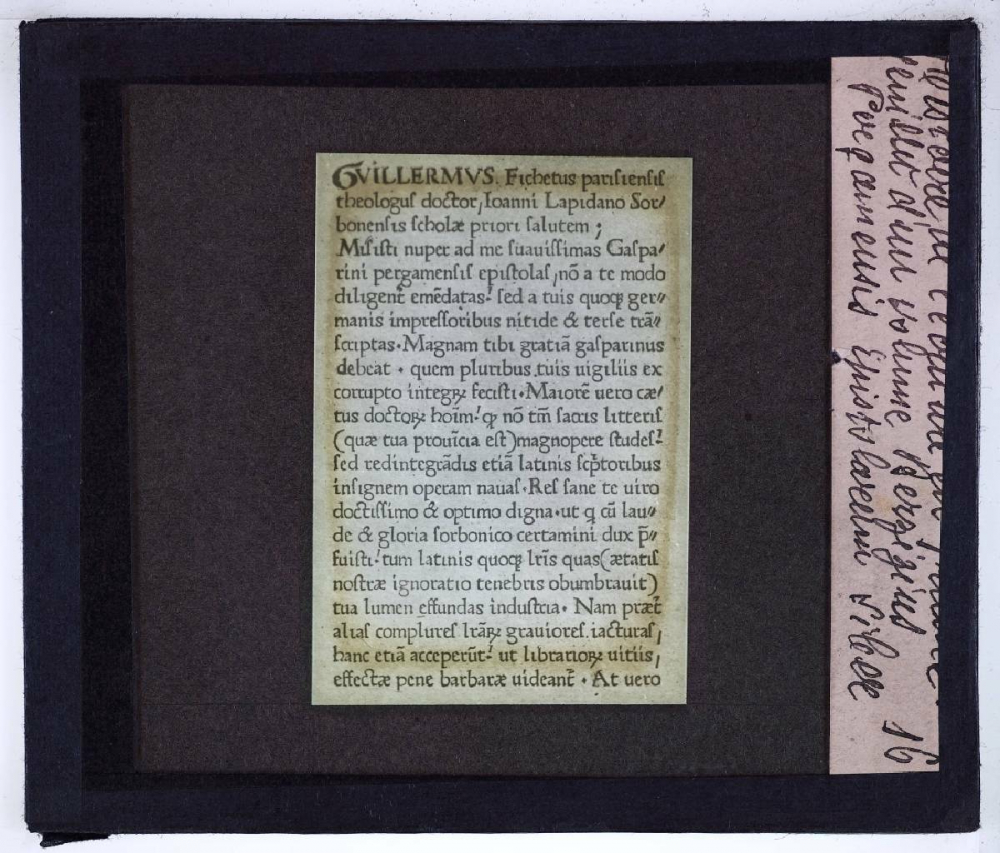 GVILLERMVS. Fichetus parisiensis
theologus doctor, Ioanni Lapidano Sor⸗
bonensis scholæ priori salutem ;
Misisti nuper ad me suauissimas Gaspa⸗
rini pergamensis epistolas, nō a te modo
diligent̄ emēdatas: sed a tuis quoqꝫ ger⸗
manis impressoribus nitide & terse trā⸗
scriptas. Magnam tibi gratiā gasparinus
debeat . quem pluribus tuis uigiliis ex
corrupto integrꝝ fecisti. Maiorē uero cæ⸗
tus doctorꝝ hoīm: ꝙ nō tm̄ sacris litteris
(quæ tua prouīcia est) magnopere studes:
sed redintegrādis etiā latinis scp̄toribus
insignem operam nauas. Res sane te uiro
doctissimo & optimo digna. ut q cū lau⸗
de & gloria sorbonico certamini dux p̄⸗
fuisti: tum latinis quoqꝫ lr̄is quas (ætatis
nostræ ignoratio tenebris obumbrauit)
tua lumen effundas industria. Nam præt̄
alias complures lr̄arꝝ grauiores iacturas,
hanc etiā acceperūt: ut librariorꝝ uitiis,
effectæ pene barbaræ uideant̄ . At uero
feuillet d'un volume
Pergamensis Epistolarum
16